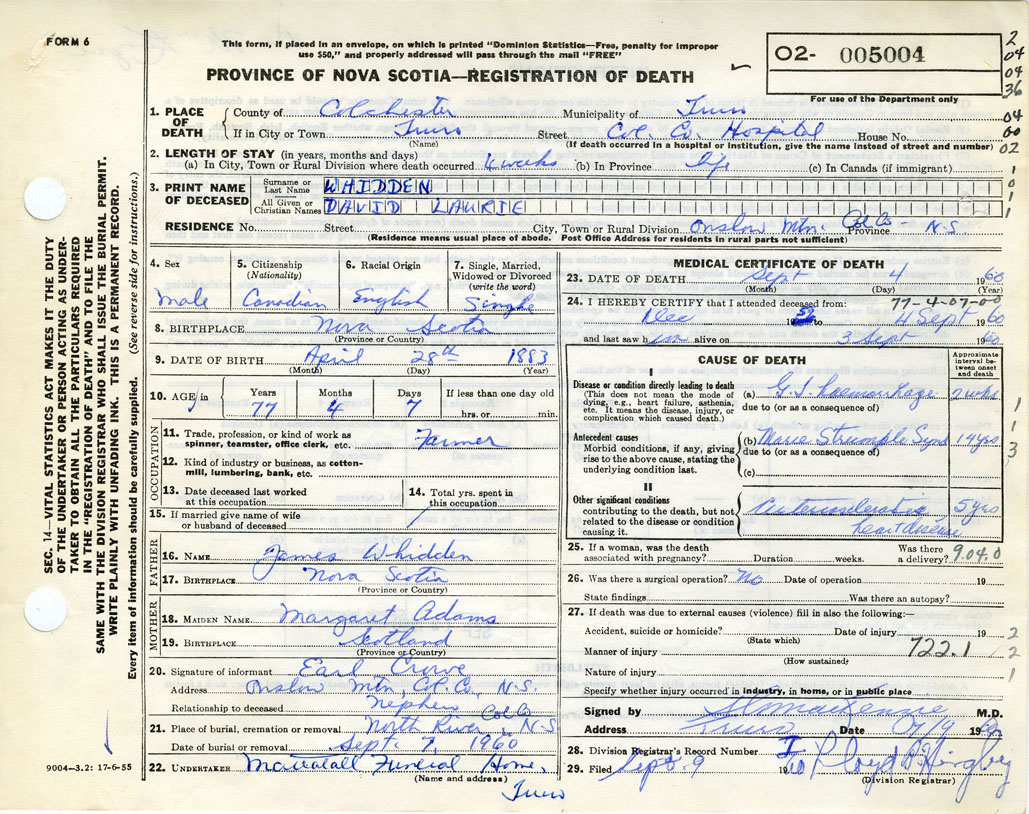 FORM 6
This form, if placed in an envelope, on which is printed "Dominion Statistics—Free, penalty for improper
use $50," and properly addressed will pass through the mail "FREE"
PROVINCE OF NOVA SCOTIA—REGISTRATION OF DEATH
O2- 005004
For use of the Department only
2
04
04
36
04
00
02
1
0
1
1
1. PLACE OF DEATH
County of Colchester Municipality of Truro
If in City or Town Truro Street Col. Co. Hospital House No.
(Name) (If death occurred in a hospital or institution, give the name instead of street and number)
2. LENGTH OF STAY (in years, months and days)
(a) In City, Town or Rural Division where death occurred 4 weeks (b) In Province life (c) In Canada (if immigrant)
3. PRINT NAME OF DECEASED
Surname or Last Name WHIDDEN
All Given or Christian Names DAVID LAURIE
RESIDENCE No. Street City, Town or Rural Division Onslow Mtn. Col Co - Province N-S
(Residence means usual place of abode. Post Office Address for residents in rural parts not sufficient)
4. Sex
Male
5. Citizenship
(Nationality)
Canadian
6. Racial Origin
English
7. Single, Married,
Widowed or Divorced
(write the word)
Single
8. BIRTHPLACE Nova Scotia
(Province or Country)
9. DATE OF BIRTH April 28th 1883
(Month) (Day) (Year)
10. AGE
Years 77
Months 4
Days 7
If less than one day
hrs. or min.
OCCUPATION
11. Trade, profession, or kind of work as
spinner, teamster, office clerk, etc. Farmer
12. Kind of industry or business, as cotton-
mill, lumbering, bank, etc.
13. Date deceased last worked
at this occupation
14. Total yrs. spent in
this occupation
15. If married give name of wife
or husband of deceased
FATHER
16. NAME James Whidden
17. BIRTHPLACE Nova Scotia
(Province or Country)
MOTHER
18. MAIDEN NAME Margaret Adams
19. BIRTHPLACE Scotland
(Province or Country)
20. Signature of informant Earl Crowe
Address Onslow Mtn, Col. Co., N.S.
Relationship to deceased nephew
21. Place of burial, cremation or removal North River Col Co N-S
Date of burial or removal Sept. 7, 1960
22. UNDERTAKER Funeral Home,
(Name and address)
Truro
MEDICAL CERTIFICATE OF DEATH
23. DATE OF DEATH Sept 4 1960
(Month) (Day) (Year)
24. I HEREBY CERTIFY that I attended deceased from: 77-4-07-00
Dec 1959 to 4 Sept 1960
and last saw him alive on 3 Sept 1960
CAUSE OF DEATH
Approximate
interval be-
tween onset
and death
I
Disease or condition directly leading to death
(This does not mean the mode of
dying, e.g., heart failure, asthenia,
etc. It means the disease, injury, or
complication which caused death.)
(a) G.I. haemorrhage 2 wks
due to (or as a consequence of)
Antecedent causes
Morbid conditions, if any, giving
rise to the above cause, stating the
underlying condition last.
(b) Marie Strumple Synd 14 yrs
due to (or as a consequence of)
(c)
II
Other significant conditions
contributing to the death, but not
related to the disease or condition
causing it.
heart disease 5 yrs
1
1
3
25. If a woman, was the death
associated with pregnancy? Duration weeks. Was there
a delivery? 9.04.0
26. Was there a surgical operation? No Date of operation 19
State findings Was there an autopsy?
27. If death was due to external causes (violence) fill in also the following:—
Accident, suicide or homicide? Date of injury 19 2
(State which)
Manner of injury 722.1 2
(How sustained)
Nature of injury 1
Specify whether injury occurred in industry, in home, or in public place
Signed by MacKenzie M.D.
Address Truro Date 7/9 1960
28. Division Registrar's Record Number
29. Filed Sept. 9 1960
(Division Registrar)
SEC. 14—VITAL STATISTICS ACT MAKES IT THE DUTY
OF THE UNDERTAKER OR PERSON ACTING AS UNDER-
TAKER TO OBTAIN ALL THE PARTICULARS REQUIRED
IN THE "REGISTRATION OF DEATH" AND TO FILE THE
SAME WITH THE DIVISION REGISTRAR WHO SHALL ISSUE THE BURIAL PERMIT.
WRITE PLAINLY WITH UNFADING INK. THIS IS A PERMANENT RECORD.
Every item of information should be carefully supplied. (See reverse side for instructions.)
9004-3.2: 17-6-55